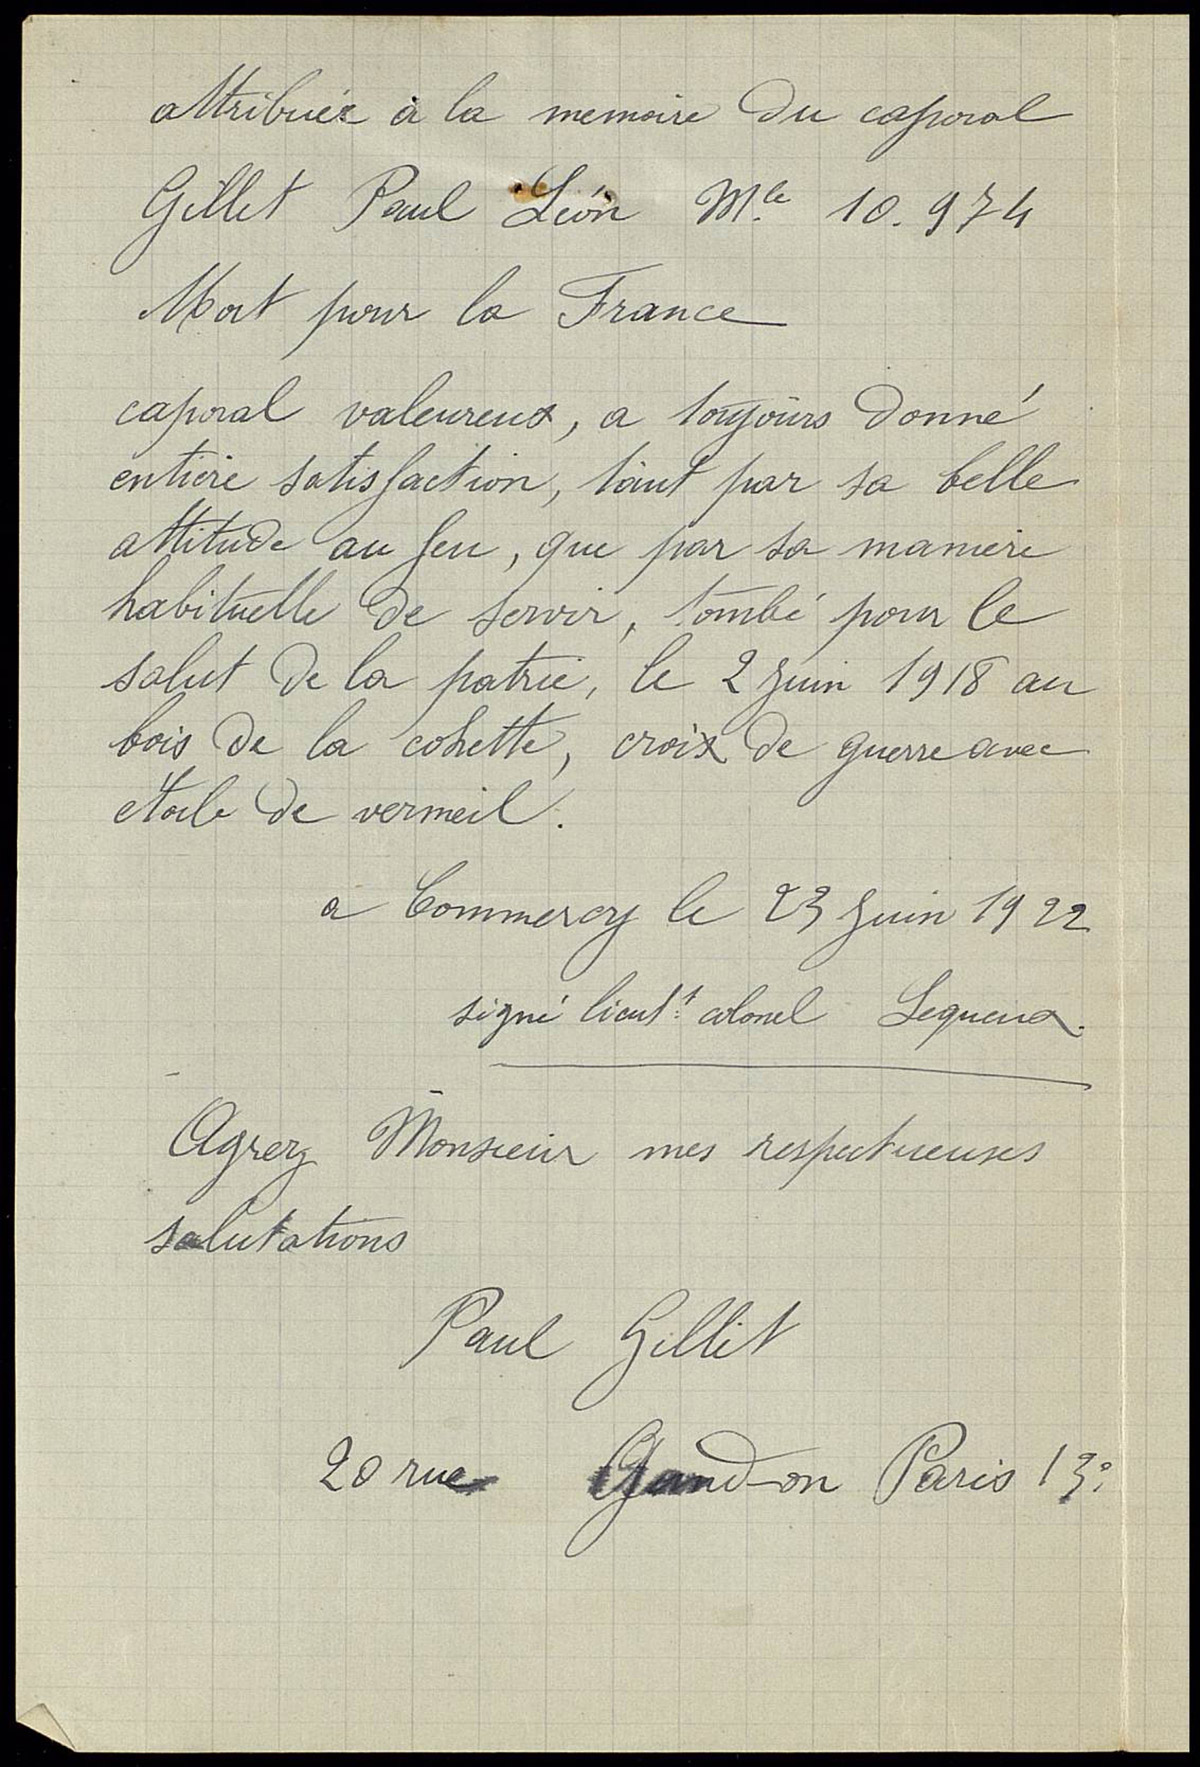 attribuée à la memoire du caporal
Gillet Paul Léon Mle 10.974
Mort pour la France
caporal valeureux, a toujours donné
entière satisfaction, tant par sa belle
attitude au feu, que par sa manière
habituelle de servir, tombé pour le
salut de la patrie, le 2 juin 1918 au
bois de la cohette, croix de guerre avec
étoile de vermeil.
a Commercy le 23 juin 1922
signé lieutt colonel Lequeux.
Agrez Monsieur mes respectueuses
salutations
Paul Gillet
20 rue Gandon Paris 13e